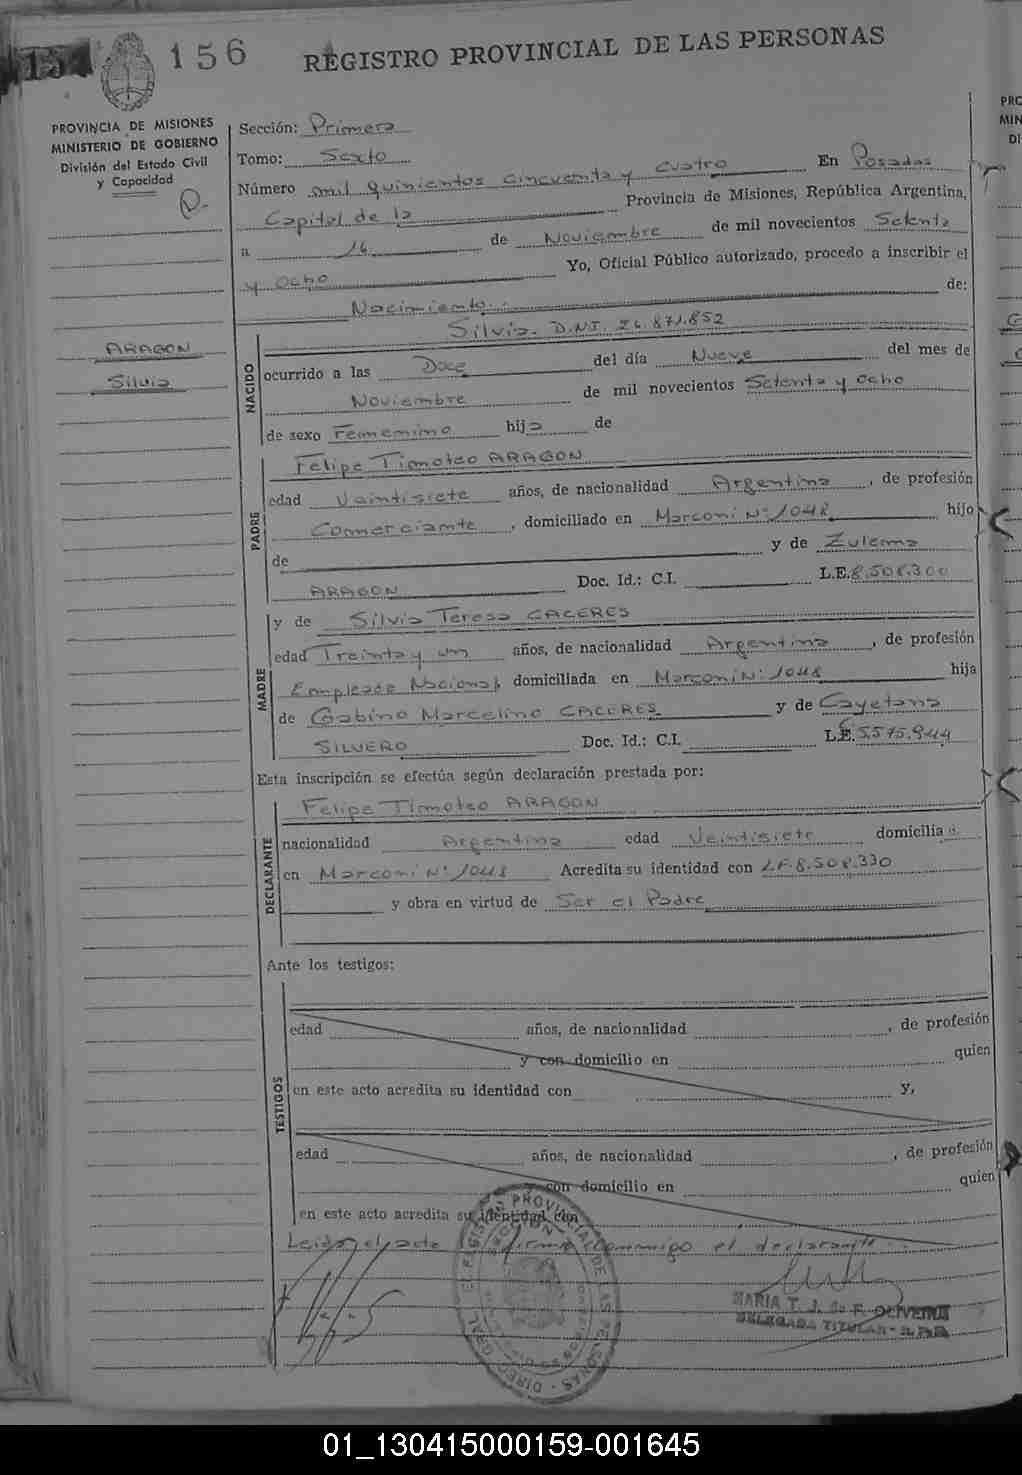 154 156 REGISTRO PROVINCIAL DE LAS PERSONAS
PROVINCIA DE MISIONES
MINISTERIO DE GOBIERNO
División del Estado Civil
y Capacidad
ARAGON
Silvia
Sección: Primera
Tomo: Sexto
Número mil quinientos cincuenta y cuatro En Posadas
Capital de la Provincia de Misiones, República Argentina,
a 16 de Noviembre de mil novecientos Setenta
y Ocho Yo, Oficial Público autorizado, procedo a inscribir el
Nacimiento de:
NACIDO
Silvia. D.N.I. 26.871.852
ocurrido a las Doce del día Nueve del mes de
Noviembre de mil novecientos Setenta y Ocho
de sexo Femenino hija de
PADRE
Felipe Timoteo ARAGON
edad Veintisiete años, de nacionalidad Argentina, de profesión
Comerciante, domiciliado en Marconi Nº 1048 hijo
de y de Zulema
ARAGON Doc. Id.: C.I. L.E. 8.508.300
MADRE
y de Silvia Teresa CACERES
edad Treinta y un años, de nacionalidad Argentina, de profesión
Empleada Nacional, domiciliada en Marconi Nº 1048 hija
de Gabino Marcelino CACERES y de Cayetana
SILVERO Doc. Id.: C.I. L.E. 5.575.944
Esta inscripción se efectúa según declaración prestada por:
DECLARANTE
Felipe Timoteo ARAGON
nacionalidad Argentina edad Veintisiete domicilia
en Marconi Nº 1048 Acredita su identidad con L.E. 8.508.330
y obra en virtud de Ser el Padre
Ante los testigos:
TESTIGOS
edad años, de nacionalidad, de profesión
y con domicilio en quien
en este acto acredita su identidad con y,
edad años, de nacionalidad, de profesión
y con domicilio en quien
en este acto acredita su identidad con
Leida el acta firma conmigo el declarante
MARIA T. J. de F. OLIVEIRA
DELEGADA TITULAR - R.P.P.
01_130415000159-001645